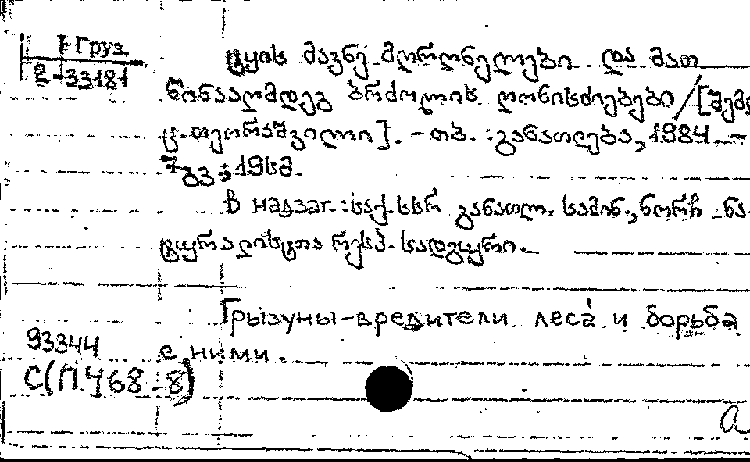 Груз
2-33181
ტყის მავნე მღრღნელები და მათ
წინააღმდეგ ბრძოლის ღონისძიებები / [შემ
ც. თეორაშვილი]. - თბ. : განათლება, 1984. -
7გვ ; 19სმ.
В надзаг.: საქ. სსრ განათლ. სამინ., ნორჩ ნა
ტურალისტთა რესპ. სადგური.
Грызуны-вредители леса и борьба
с ними.
93344
С(П.468-8)